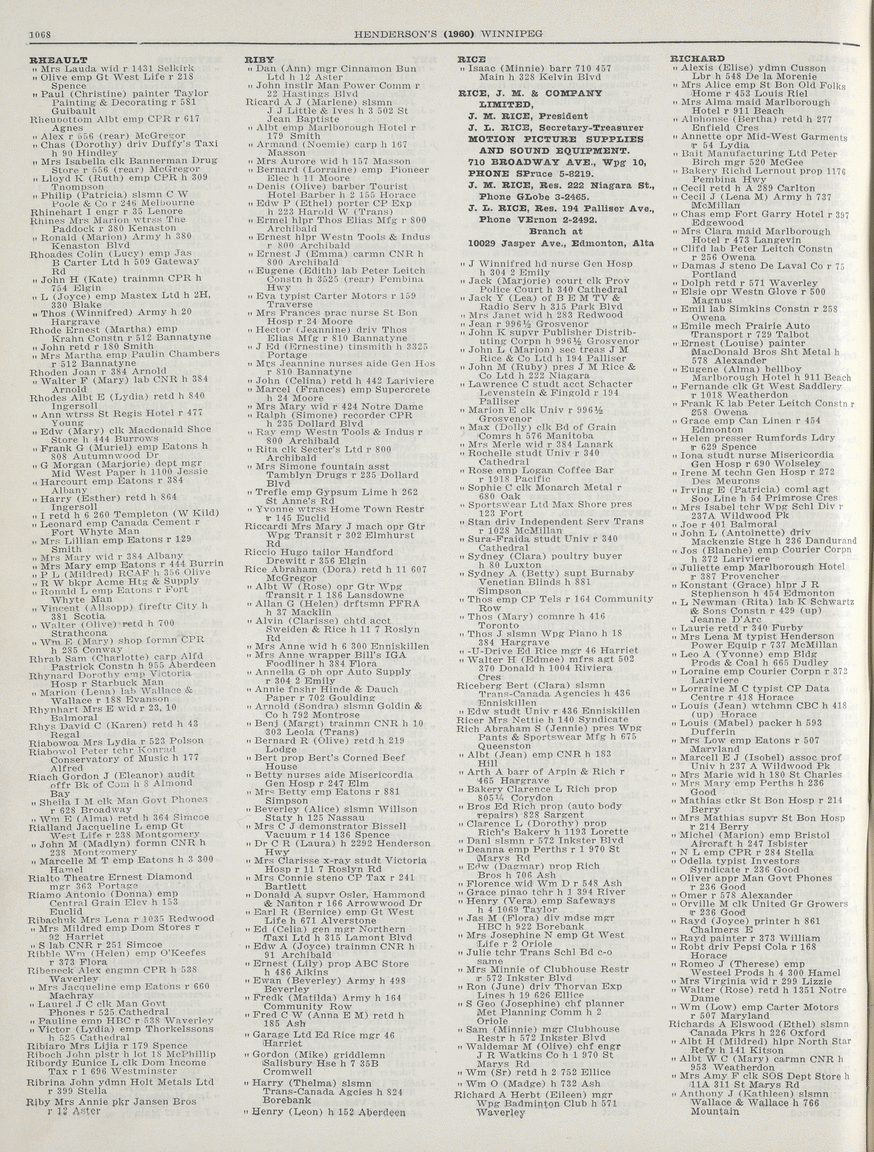 1068
HENDERSON'S (1960) WINNIPEG
RHEAULT
" Mrs Lauda wid r 1431 Selkirk
" Olive emp Gt West Life r 218
Spence
" Paul (Christine) painter Taylor
Painting & Decorating r 581
Guibault
Rheubottom Albt emp CPR r 617
Agnes
" Alex r 656 (rear) McGregor
" Chas (Dorothy) driv Duffy's Taxi
h 90 Hindley
" Mrs Isabella clk Bannerman Drug
Store r 556 (rear) McGregor
" Lloyd K (Ruth) emp CPR h 309
Thompson
" Philip (Patricia) slsmn C W
Poole & Co r 246 Melbourne
Rhinehart I engr r 35 Lenore
Rhines Mrs Marion wtrss The
Paddock r 380 Kenaston
" Ronald (Marion) Army h 380
Kenaston Blvd
Rhoades Colin (Lucy) emp Jas
B Carter Ltd h 509 Gateway
Rd
" John H (Kate) trainmn CPR h
754 Elgin
" L (Joyce) emp Mastex Ltd h 2H,
330 Blake
" Thos (Winnifred) Army h 20
Hargrave
Rhode Ernest (Martha) emp
Krahn Constn r 512 Bannatyne
" John retd r 180 Smith
" Mrs Martha emp Paulin Chambers
r 512 Bannatyne
Rhoden Joan r 384 Arnold
" Walter F (Mary) lab CNR h 384
Arnold
Rhodes Albt E (Lydia) retd h 840
Ingersoll
" Ann wtrss St Regis Hotel r 477
Young
" Edw (Mary) clk Macdonald Shoe
Store h 444 Burrows
" Frank G (Muriel) emp Eatons h
808 Autumnwood Dr
" G Morgan (Marjorie) dept mgr
Mid West Paper h 1100 Jessie
" Harcourt emp Eatons r 384
Albany
" Harry (Esther) retd h 864
Ingersoll
" I retd h 6 260 Templeton (W Kild)
" Leonard emp Canada Cement r
Fort Whyte Man
" Mrs Lillian emp Eatons r 129
Smith
" Mrs Mary wid r 384 Albany
" Mrs Mary emp Eatons r 444 Burrin
" P L (Mildred) RCAF h 356 Olive
" R W bkpr Acme Htg & Supply
" Ronald L emp Eatons r Fort
Whyte Man
" Vincent (Allsopp) fireftr City h
381 Scotia
" Walter (Olive) retd h 700
Strathcona
" Wm E (Mary) shop formn CPR
h 285 Conway
Rhrab Sam (Charlotte) carp Alfd
Pastrick Constn h 955 Aberdeen
Rhynard Dorothy emp Victoria
Hosp r Starbuck Man
" Marion (Lena) lab Wallace &
Wallace r 188 Evanson
Rhynhart Mrs E wid r 23, 10
Balmoral
Rhys David C (Karen) retd h 43
Regal
Riabowoa Mrs Lydia r 523 Polson
Riabowol Peter tchr Konrad
Conservatory of Music h 177
Alfred
Riach Gordon J (Eleanor) audit
offr Bk of Com h 8 Almond
Bay
" Sheila I M clk Man Govt Phones
r 628 Broadway
" Wm E (Alma) retd h 364 Simcoe
Rialland Jacqueline L emp Gt
West Life r 238 Montgomery
" John M (Madlyn) formn CNR h
238 Montgomery
" Marcelle M T emp Eatons h 3 300
Hamel
Rialto Theatre Ernest Diamond
mgr 363 Portage
Riamo Antonio (Donna) emp
Central Grain Elev h 153
Euclid
Ribachuk Mrs Lena r 1035 Redwood
" Mrs Mildred emp Dom Stores r
92 Harriet
" S lab CNR r 251 Simcoe
Ribble Wm (Helen) emp O'Keefes
r 373 Flora
Ribeneck Alex engmn CPR h 538
Waverley
" Mrs Jacqueline emp Eatons r 660
Machray
" Laurel J C clk Man Govt
Phones r 525 Cathedral
" Pauline emp HBC r 538 Waverley
" Victor (Lydia) emp Thorkelssons
h 525 Cathedral
Ribiaro Mrs Lijia r 179 Spence
Riboch John plstr h lot 18 McPhillip
Ribordy Eunice L clk Dom Income
Tax r 1 696 Westminster
Ribrina John ydmn Holt Metals Ltd
r 399 Stella
Riby Mrs Annie pkr Jansen Bros
r 12 Aster
RIBY
" Dan (Ann) mgr Cinnamon Bun
Ltd h 12 Aster
" John instlr Man Power Comm r
22 Hastings Blvd
Ricard A J (Marlene) slsmn
J J Little & Ives h 3 502 St
Jean Baptiste
" Albt emp Marlborough Hotel r
179 Smith
" Armand (Noemie) carp h 167
Masson
" Mrs Aurore wid h 157 Masson
" Bernard (Lorraine) emp Pioneer
Elec h 11 Moore
" Denis (Olive) barber Tourist
Hotel Barber h 2 155 Horace
" Edw P (Ethel) porter CP Exp
h 223 Harold W (Trans)
" Ermel hlpr Thos Elias Mfg r 800
Archibald
" Ernest hlpr Westn Tools & Indus
r 800 Archibald
" Ernest J (Emma) carmn CNR h
800 Archibald
" Eugene (Edith) lab Peter Leitch
Constn h 3525 (rear) Pembina
Hwy
" Eva typist Carter Motors r 159
Traverse
" Mrs Frances prac nurse St Bon
Hosp r 24 Moore
" Hector (Jeannine) driv Thos
Elias Mfg r 810 Bannatyne
" J Ed (Ernestine) tinsmith h 3325
Portage
" Mrs Jeannine nurses aide Gen Hos
r 810 Bannatyne
" John (Celina) retd h 442 Lariviere
" Marcel (Frances) emp Supercrete
h 24 Moore
" Mrs Mary wid r 424 Notre Dame
" Ralph (Simone) recorder CPR
h 235 Dollard Blvd
" Ray emp Westn Tools & Indus r
800 Archibald
" Rita clk Secter's Ltd r 800
Archibald
" Mrs Simone fountain asst
Tamblyn Drugs r 235 Dollard
Blvd
" Trefle emp Gypsum Lime h 262
St Anne's Rd
" Yvonne wtrss Home Town Restr
r 145 Euclid
Riccardi Mrs Mary J mach opr Gtr
Wpg Transit r 302 Elmhurst
Rd
Riccio Hugo tailor Handford
Drewitt r 356 Elgin
Rice Abraham (Dora) retd h 11 607
McGregor
" Albt W (Rose) opr Gtr Wpg
Transit r 1 186 Lansdowne
" Allan G (Helen) drftsmn PFRA
h 37 Macklin
" Alvin (Clarisse) chtd acct
Sweiden & Rice h 11 7 Roslyn
Rd
" Mrs Anne wid h 6 300 Enniskillen
" Mrs Anne wrapper Bill's IGA
Foodliner h 384 Flora
" Annella G ph opr Auto Supply
r 304 2 Emily
" Annie fnshr Hinde & Dauch
Paper r 702 Goulding
" Arnold (Sondra) slsmn Goldin &
Co h 792 Montrose
" Benj (Margt) trainmn CNR h 10
303 Leola (Trans)
" Bernard R (Olive) retd h 219
Lodge
" Bert prop Bert's Corned Beef
House
" Betty nurses aide Misericordia
Gen Hosp r 247 Elm
" Mrs Betty emp Eatons r 881
Simpson
" Beverley (Alice) slsmn Willson
Staty h 125 Nassau
" Mrs C J demonstrator Bissell
Vacuum r 14 136 Spence
" Dr C R (Laura) h 2292 Henderson
Hwy
" Mrs Clarisse x-ray studt Victoria
Hosp r 11 7 Roslyn Rd
" Mrs Connie steno CP Tax r 241
Bartlett
" Donald A supvr Osler, Hammond
& Nanton r 166 Arrowwood Dr
" Earl R (Bernice) emp Gt West
Life h 671 Alverstone
" Ed (Celia) gen mgr Northern
Taxi Ltd h 315 Lamont Blvd
" Edw A (Joyce) trainmn CNR h
91 Archibald
" Ernest (Lily) prop ABC Store
h 486 Aikins
" Ewan (Beverley) Army h 498
Beverley
" Fredk (Matilda) Army h 164
Community Row
" Fred C W (Anna E M) retd h
185 Ash
" Garage Ltd Ed Rice mgr 46
Harriet
" Gordon (Mike) griddlemn
Salisbury Hse h 7 35B
Cromwell
" Harry (Thelma) slsmn
Trans-Canada Agcies h 824
Borebank
" Henry (Leon) h 152 Aberdeen
RICE
" Isaac (Minnie) barr 710 457
Main h 328 Kelvin Blvd
RICE, J. M. & COMPANY
LIMITED,
J. M. RICE, President
J. L. RICE, Secretary-Treasurer
MOTION PICTURE SUPPLIES
AND SOUND EQUIPMENT.
710 BROADWAY AVE., Wpg 10,
PHONE SPruce 5-8219.
J. M. RICE, Res. 222 Niagara St.,
Phone GLobe 3-2465.
J. L. RICE, Res. 194 Palliser Ave.,
Phone VErnon 2-2492.
Branch at
10029 Jasper Ave., Edmonton, Alta
" J Winnifred hd nurse Gen Hosp
h 304 2 Emily
" Jack (Marjorie) court clk Prov
Police Court h 340 Cathedral
" Jack Y (Lea) of B E M TV &
Radio Serv h 315 Park Blvd
" Mrs Janet wid h 283 Redwood
" Jean r 996½ Grosvenor
" John K supvr Publisher Distrib-
uting Corpn h 996½ Grosvenor
" John L (Marion) sec treas J M
Rice & Co Ltd h 194 Palliser
" John M (Ruby) pres J M Rice &
Co Ltd h 222 Niagara
" Lawrence C studt acct Schacter
Levenstein & Fingold r 194
Palliser
" Marion E clk Univ r 996½
Grosvenor
" Max (Dolly) clk Bd of Grain
Comrs h 576 Manitoba
" Mrs Merle wid r 384 Lanark
" Rochelle studt Univ r 340
Cathedral
" Rose emp Logan Coffee Bar
r 1918 Pacific
" Sophie C clk Monarch Metal r
680 Oak
" Sportswear Ltd Max Shore pres
123 Fort
" Stan driv Independent Serv Trans
r 1028 McMillan
" Sura-Fraida studt Univ r 340
Cathedral
" Sydney (Clara) poultry buyer
h 80 Luxton
" Sydney A (Betty) supt Burnaby
Venetian Blinds h 881
Simpson
" Thos emp CP Tels r 164 Community
Row
" Thos (Mary) comnre h 416
Toronto
" Thos J slsmn Wpg Piano h 18
384 Hargrave
" -U-Drive Ed Rice mgr 46 Harriet
" Walter H (Edmee) mfrs agt 502
370 Donald h 1004 Riviera
Cres
Riceberg Bert (Clara) slsmn
Trans-Canada Agencies h 436
Enniskillen
" Edw studt Univ r 436 Enniskillen
Ricer Mrs Nettie h 140 Syndicate
Rich Abraham S (Jennie) pres Wpg
Pants & Sportswear Mfg h 675
Queenston
" Albt (Jean) emp CNR h 183
Hill
" Arth A barr of Arpin & Rich r
465 Hargrave
" Bakery Clarence L Rich prop
805¼ Corydon
" Bros Ed Rich prop (auto body
repairs) 828 Sargent
" Clarence L (Dorothy) prop
Rich's Bakery h 1193 Lorette
" Danl slsmn r 572 Inkster Blvd
" Deanna emp Perths r 1 970 St
Marys Rd
" Edw (Dagmar) prop Rich
Bros h 706 Ash
" Florence wid Wm D r 548 Ash
" Grace pinao tchr h 1 394 River
" Henry (Vera) emp Safeways
h 4 1069 Taylor
" Jas M (Flora) div mdse mgr
HBC h 922 Borebank
" Mrs Josephine N emp Gt West
Life r 2 Oriole
" Julie tchr Trans Schl Bd c-o
same
" Mrs Minnie of Clubhouse Restr
r 572 Inkster Blvd
" Ron (June) driv Thorvan Exp
Lines h 19 626 Ellice
" S Geo (Josephine) chf planner
Met Planning Comm h 2
Oriole
" Sam (Minnie) mgr Clubhouse
Restr h 572 Inkster Blvd
" Waldemar M (Olive) chf engr
J R Watkins Co h 1 970 St
Marys Rd
" Wm (Sr) retd h 2 752 Ellice
" Wm O (Madge) h 732 Ash
Richard A Herbt (Eileen) mgr
Wpg Badminton Club h 571
Waverley
RICHARD
" Alexis (Elise) ydmn Cusson
Lbr h 548 De la Morenie
" Mrs Alice emp St Bon Old Folks
Home r 453 Louis Riel
" Mrs Alma maid Marlborough
Hotel r 911 Beach
" Alphonse (Bertha) retd h 277
Enfield Cres
" Annette opr Mid-West Garments
r 54 Lydia
" Bait Manufacturing Ltd Peter
Birch mgr 520 McGee
" Bakery Richd Lernout prop 1176
Pembina Hwy
" Cecil retd h A 289 Carlton
" Cecil J (Lena M) Army h 737
McMillan
" Chas emp Fort Garry Hotel r 397
Edgewood
" Mrs Clara maid Marlborough
Hotel r 473 Langevin
" Clifd lab Peter Leitch Constn
r 256 Owena
" Damas J steno De Laval Co r 75
Portland
" Dolph retd r 571 Waverley
" Elsie opr Westn Glove r 500
Magnus
" Emil lab Simkins Constn r 258
Owena
" Emile mech Prairie Auto
Transport r 729 Talbot
" Ernest (Louise) painter
MacDonald Bros Sht Metal h
578 Alexander
" Eugene (Alma) bellboy
Marlborough Hotel h 911 Beach
" Fernande clk Gt West Saddlery
r 1018 Weatherdon
" Frank K lab Peter Leitch Constn r
258 Owena
" Grace emp Can Linen r 454
Edmonton
" Helen presser Rumfords Ldry
r 629 Spence
" Iona studt nurse Misericordia
Gen Hosp r 690 Wolseley
" Irene M techn Gen Hosp r 272
Des Meurons
" Irving E (Patricia) coml agt
Soo Line h 54 Primrose Cres
" Mrs Isabel tchr Wpg Schl Div r
237A Wildwood Pk
" Joe r 401 Balmoral
" John L (Antoinette) driv
Mackenzie Stge h 236 Dandurand
" Jos (Blanche) emp Courier Corpn
h 372 Lariviere
" Juliette emp Marlborough Hotel
r 387 Provencher
" Konstant (Grace) hlpr J R
Stephenson h 454 Edmonton
" L Newman (Rita) lab K Schwartz
& Sons Constn r 429 (up)
Jeanne D'Arc
" Laurie retd r 340 Furby
" Mrs Lena M typist Henderson
Power Equip r 737 McMillan
" Leo A (Yvonne) emp Bldg
Prods & Coal h 665 Dudley
" Loraine emp Courier Corpn r 372
Lariviere
" Lorraine M C typist CP Data
Centre r 418 Horace
" Louis (Jean) wtchmn CBC h 418
(up) Horace
" Louis (Mabel) packer h 593
Dufferin
" Mrs Low emp Eatons r 507
Maryland
" Marcell E J (Isobel) assoc prof
Univ h 237 A Wildwood Pk
" Mrs Marie wid h 180 St Charles
" Mrs Mary emp Perths h 236
Good
" Mathias ctkr St Bon Hosp r 214
Berry
" Mrs Mathias supvr St Bon Hosp
r 214 Berry
" Michel (Marion) emp Bristol
Aircraft h 247 Isbister
" N L emp CPR r 284 Stella
" Odella typist Investors
Syndicate r 236 Good
" Oliver appr Man Govt Phones
r 236 Good
" Omer r 578 Alexander
" Orville M clk United Gr Growers
r 236 Good
" Rayd (Joyce) printer h 861
Chalmers E
" Rayd painter r 373 William
" Robt driv Pepsi Cola r 168
Horace
" Romeo J (Therese) emp
Westeel Prods h 4 300 Hamel
" Mrs Virginia wid r 299 Lizzie
" Walter (Rose) retd h 1351 Notre
Dame
" Wm (Low) emp Carter Motors
r 507 Maryland
Richards A Elswood (Ethel) slsmn
Canada Pkrs h 226 Oxford
" Albt H (Mildred) hlpr North Star
Refy h 141 Kitson
" Albt W C (Mary) carmn CNR h
953 Weatherdon
" Mrs Amy F clk SOS Dept Store h
11A 311 St Marys Rd
" Anthony J (Kathleen) slsmn
Wallace & Wallace h 766
Mountain